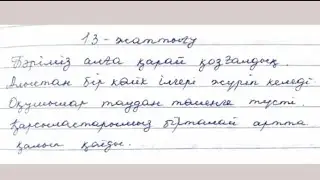 13 - жаттығу
Бәріміз алға қарай қозғалдық.
Алыстан бір көлік ілгері жүріп келеді.
Оқушылар таудан төменге түсті.
Қарсыластарымыз бірталай артта
қалып қойды.